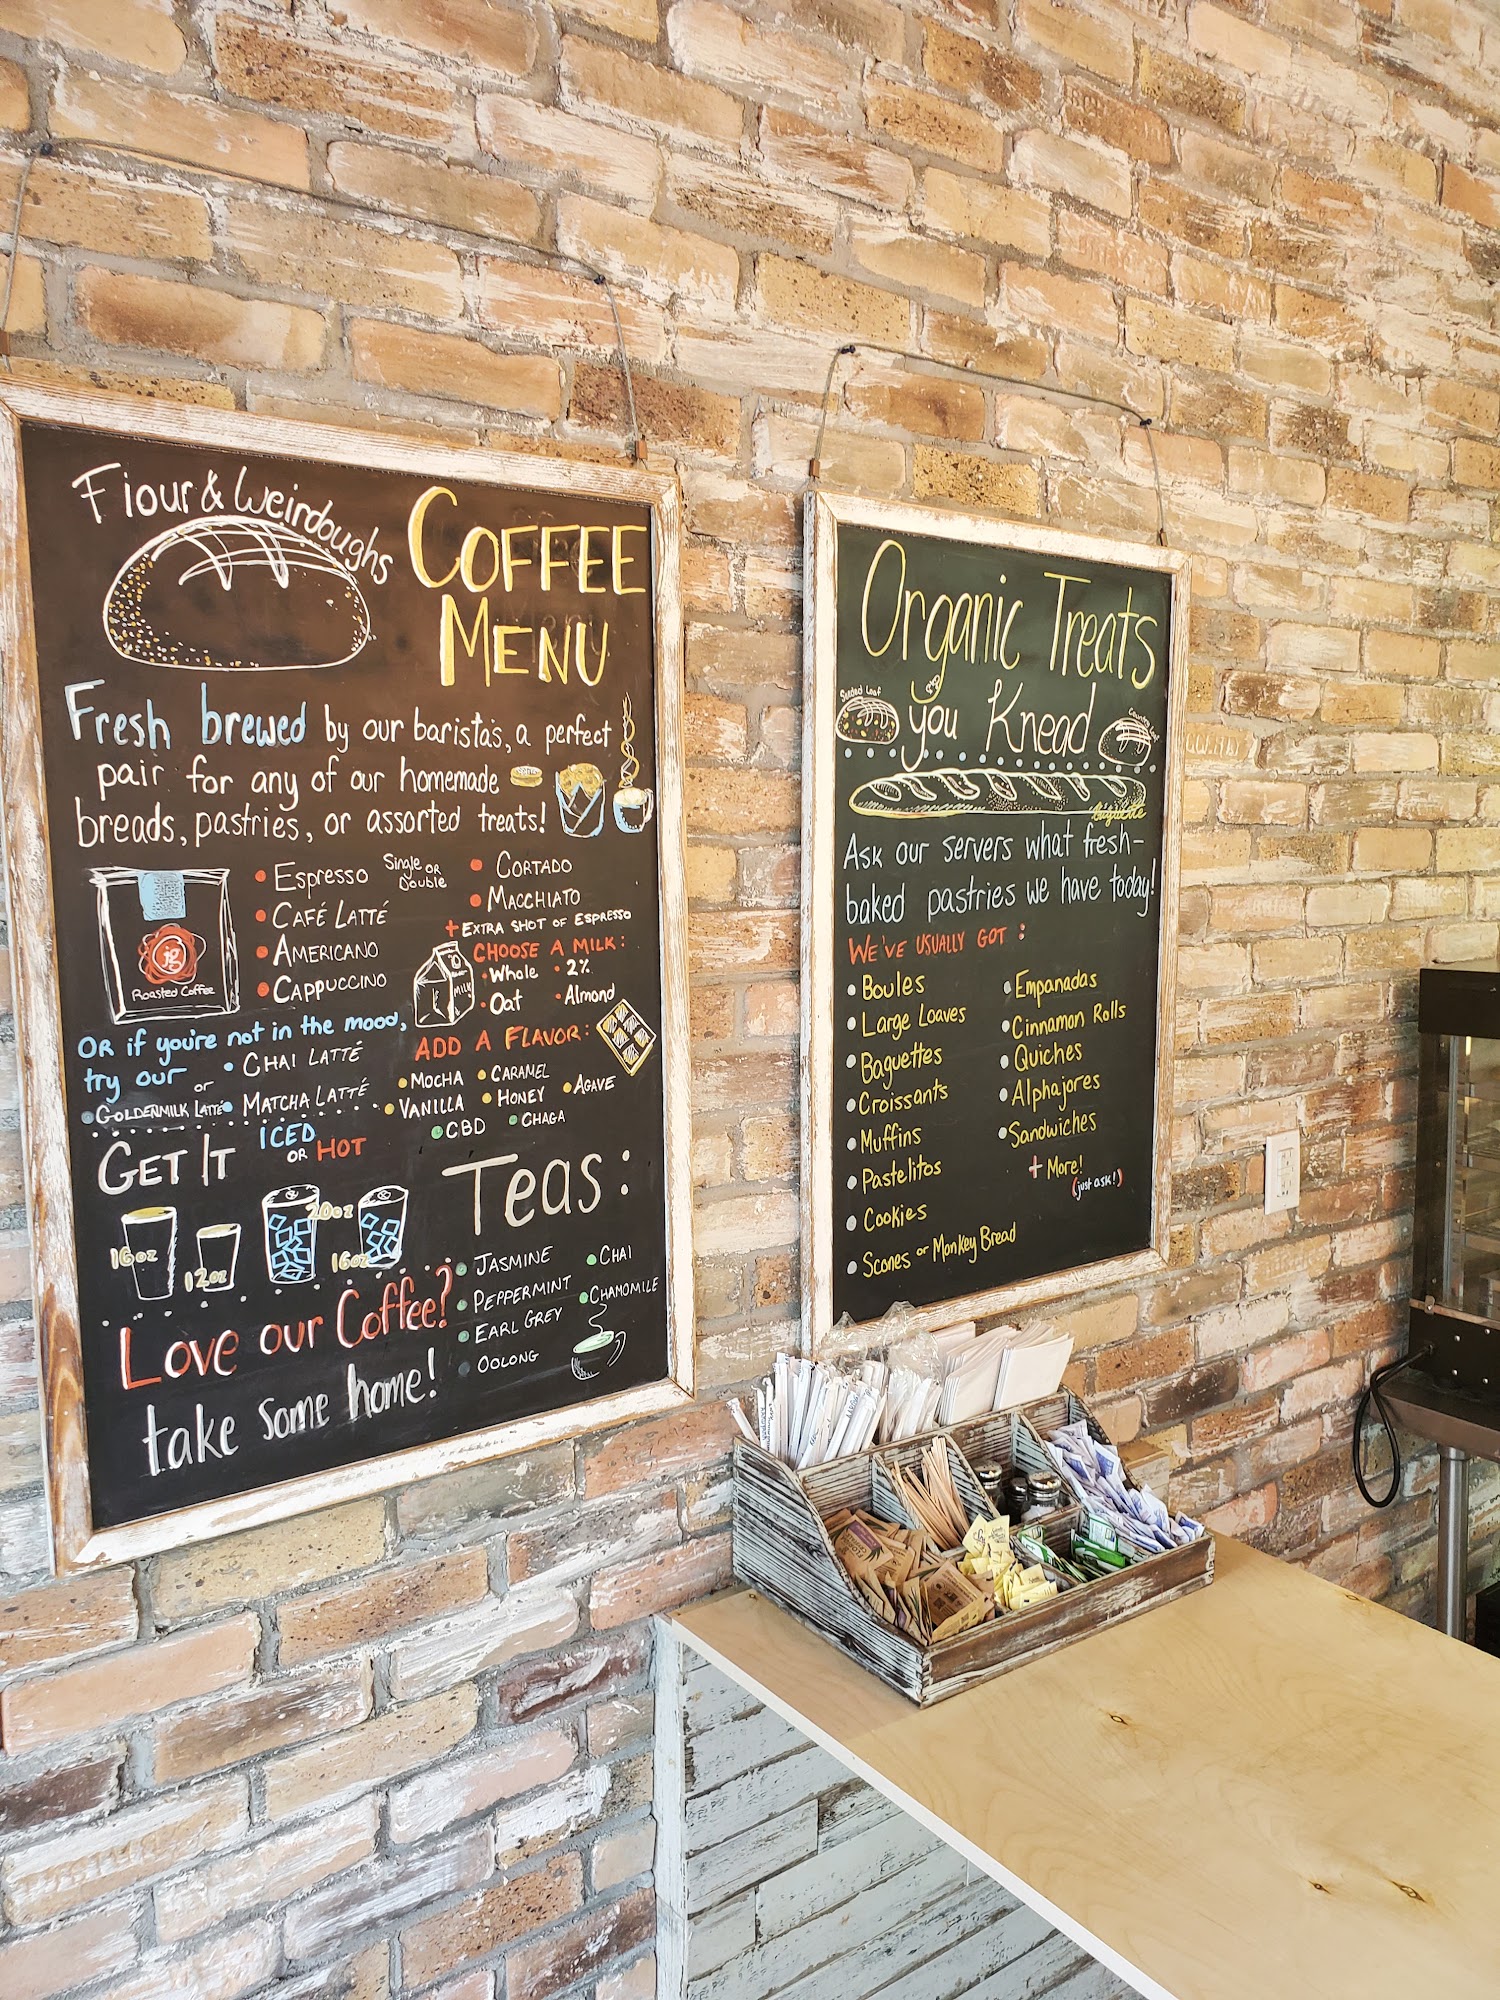 Flour & Weirdoughs
COFFEE
MENU
Fresh brewed by our barista's, a perfect
pair for any of our homemade
breads, pastries, or assorted treats!
• ESPRESSO Single OR Double
• CAFÉ LATTÉ
• AMERICANO
• CAPPUCCINO
• CORTADO
• MACCHIATO
+ EXTRA SHOT OF ESPRESSO
jg
Roasted Coffee
MILK
CHOOSE A MILK:
• Whole • 2%
• Oat • Almond
OR if you're not in the mood,
try our • CHAI LATTÉ
or
• GOLDENMILK LATTÉ • MATCHA LATTÉ
ADD A FLAVOR:
• MOCHA • CARAMEL
• VANILLA • HONEY • AGAVE
• CBD • CHAGA
GET IT ICED OR HOT
16oz 12oz 20oz 16oz
TEAS:
• JASMINE • CHAI
• PEPPERMINT • CHAMOMILE
• EARL GREY
• OOLONG
LOVE our Coffee?
take some home!
Organic Treats
you Knead
Seeded Loaf
Country Loaf
baguette
Ask our servers what fresh-
baked pastries we have today!
WE'VE USUALLY GOT:
• Boules
• Large Loaves
• Baguettes
• Croissants
• Muffins
• Pastelitos
• Cookies
• Scones or Monkey Bread
• Empanadas
• Cinnamon Rolls
• Quiches
• Alphajores
• Sandwiches
+ More!
(just ask!)